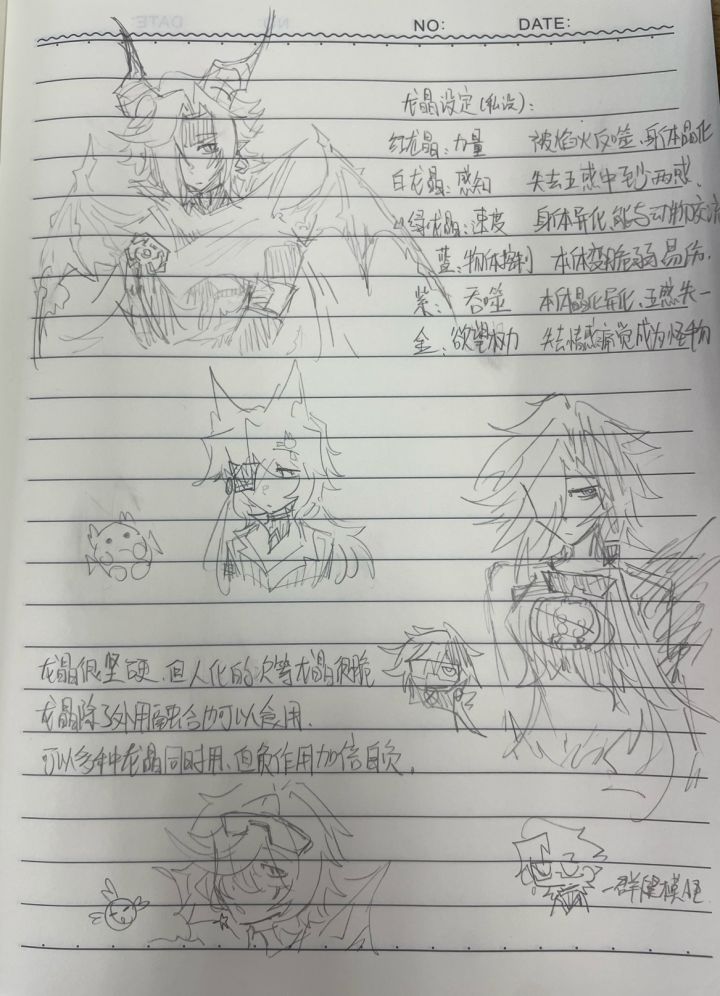 NO: DATE:
龙晶设定(私设):
红龙晶:力量 被焰火反噬,身体晶化
白龙晶:感知 失去五感中至少两感.
绿龙晶:速度 身体异化,能与动物交流
蓝:物体控制 本体变脆弱易伤.
紫: 吞噬 本体晶化异化,五感失一
金:欲望权力 失去情感痛觉成为怪物
龙晶很坚硬,但人化的次等龙晶很脆
龙晶除了外用融合也可以食用.
可以多种龙晶同时用,但负作用加倍自负.
一群屋模